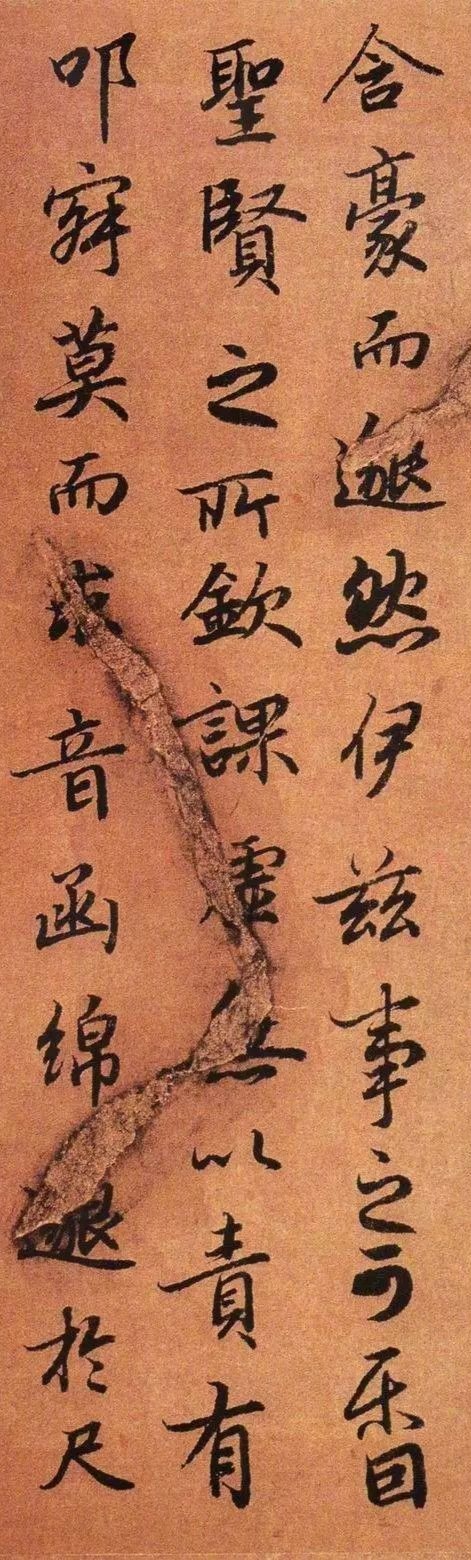 含豪而邈然伊茲事之可樂固
聖賢之所欽課虛無以責有
叩寂莫而求音函綿邈於尺